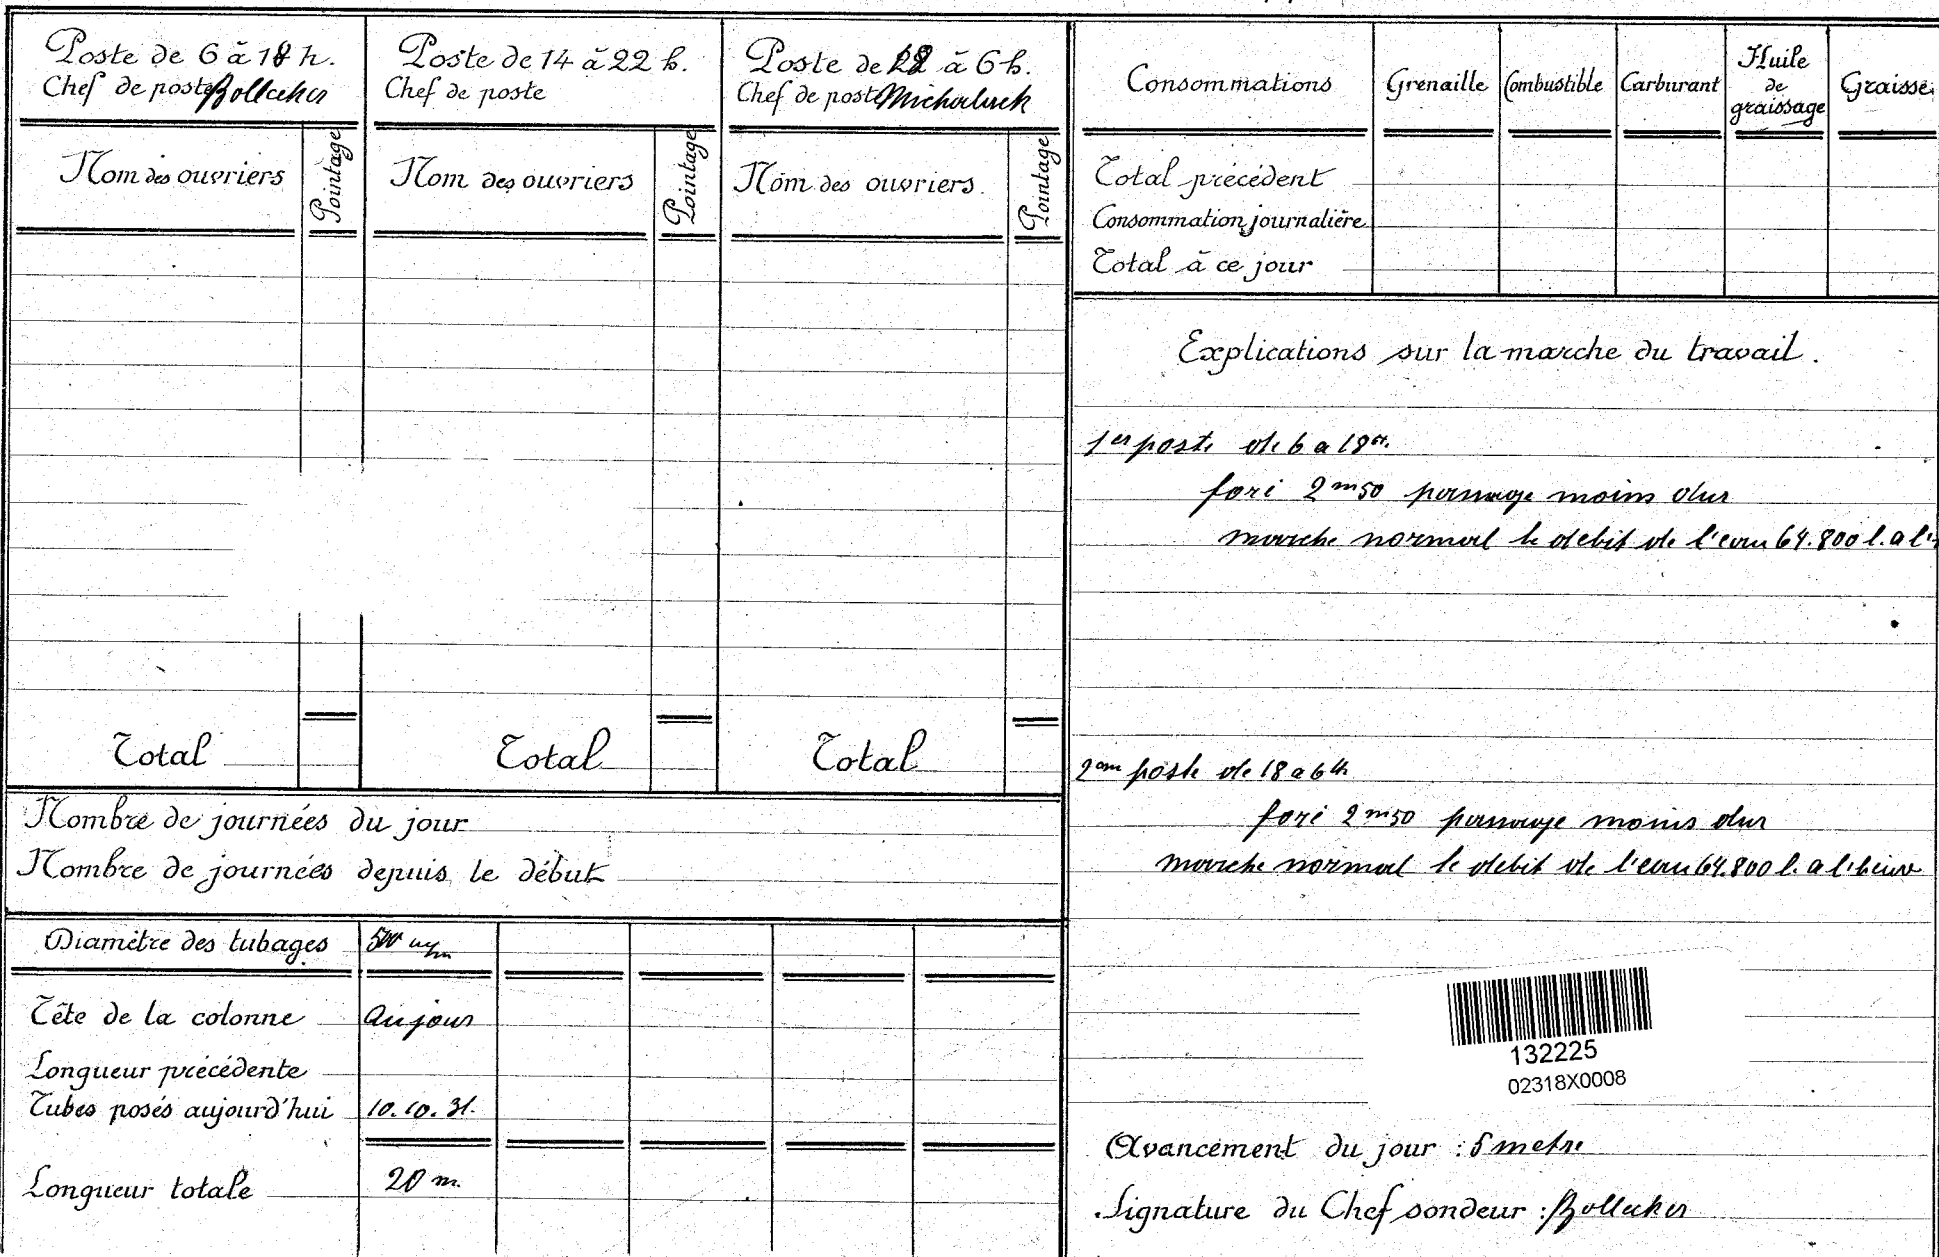 Poste de 6 à 18 h.
Chef de poste Bollecker
Nom des ouvriers
Pointage
Total
Poste de 14 à 22 h.
Chef de poste
Nom des ouvriers
Pointage
Total
Poste de 18 à 6 h.
Chef de poste
Nom des ouvriers.
Pointage
Total
Nombre de journées du jour
Nombre de journées depuis le début
Diamètre des tubages 500 m/m
Tête de la colonne au jour
Longueur précédente
Tubes posés aujourd'hui 10.10.31.
Longueur totale 20 m.
Consommations Grenaille Combustible Carburant Huile de graissage Graisse
Total précédent
Consommation journalière
Total à ce jour
Explications sur la marche du travail.
1er poste de 6 a 18h.
foré 2m50 passage moins dur
marche normal le debit de l'eau 64.800 l. a l'
2em poste de 18 a 6h
foré 2m50 passage moins dur
marche normal le debit de l'eau 64.800 l. a l'heure
132225
02318X0008
Avancement du jour : 5 metre
Signature du Chef sondeur : Bollecker